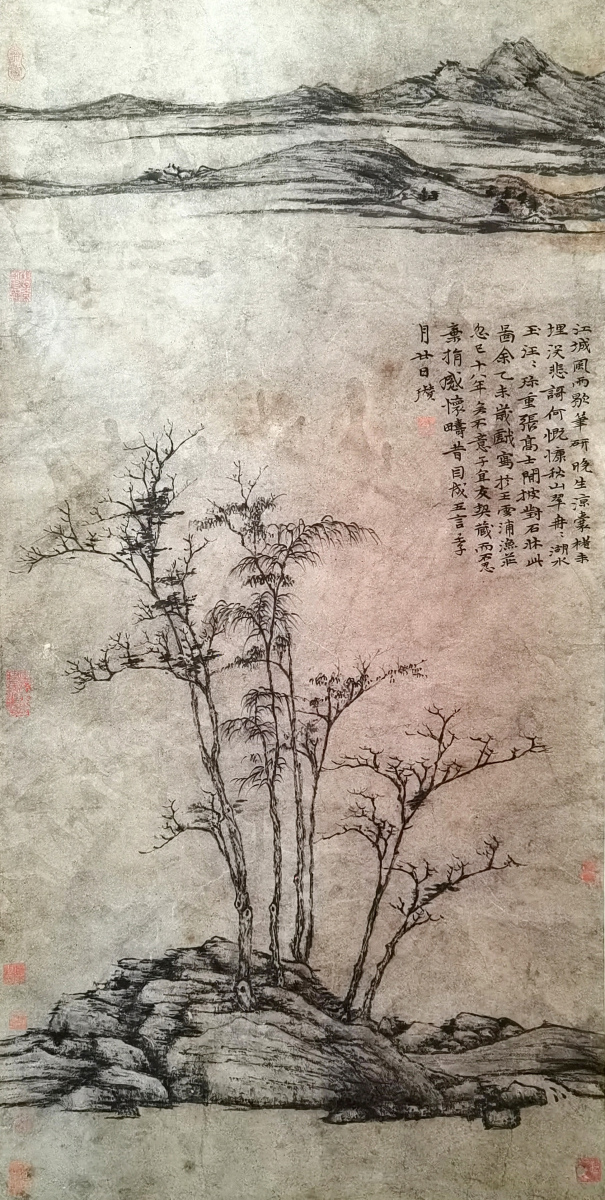 江城風雨歇筆研晚生涼囊楮未
埋沒悲謌何慨慷秋山翠冉〻湖水
玉汪〻珍重張高士閒披對石牀此
啚余乙未歲戲寫於王雲浦漁莊
忽已十八年矣不意子宜友契藏而不忍
棄捐感懷疇昔因成五言壬子七
月廿日瓚